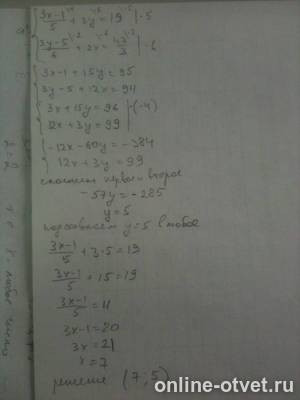 (3x-1)/5 + 3y = 19 | ·5
(3y-5)/6 + 2x = 47/3 | ·6
3x-1+15y=95
3y-5+12x=94
3x+15y=96 |·(-4)
12x+3y=99
-12x-60y=-384
12x+3y=99
-57y=-285
y=5
подставляем y=5 в любое
(3x-1)/5 + 3·5=19
(3x-1)/5 + 15=19
(3x-1)/5 = 4
3x-1=20
3x=21
x=7
решение (7;5)
online-otvet.ru